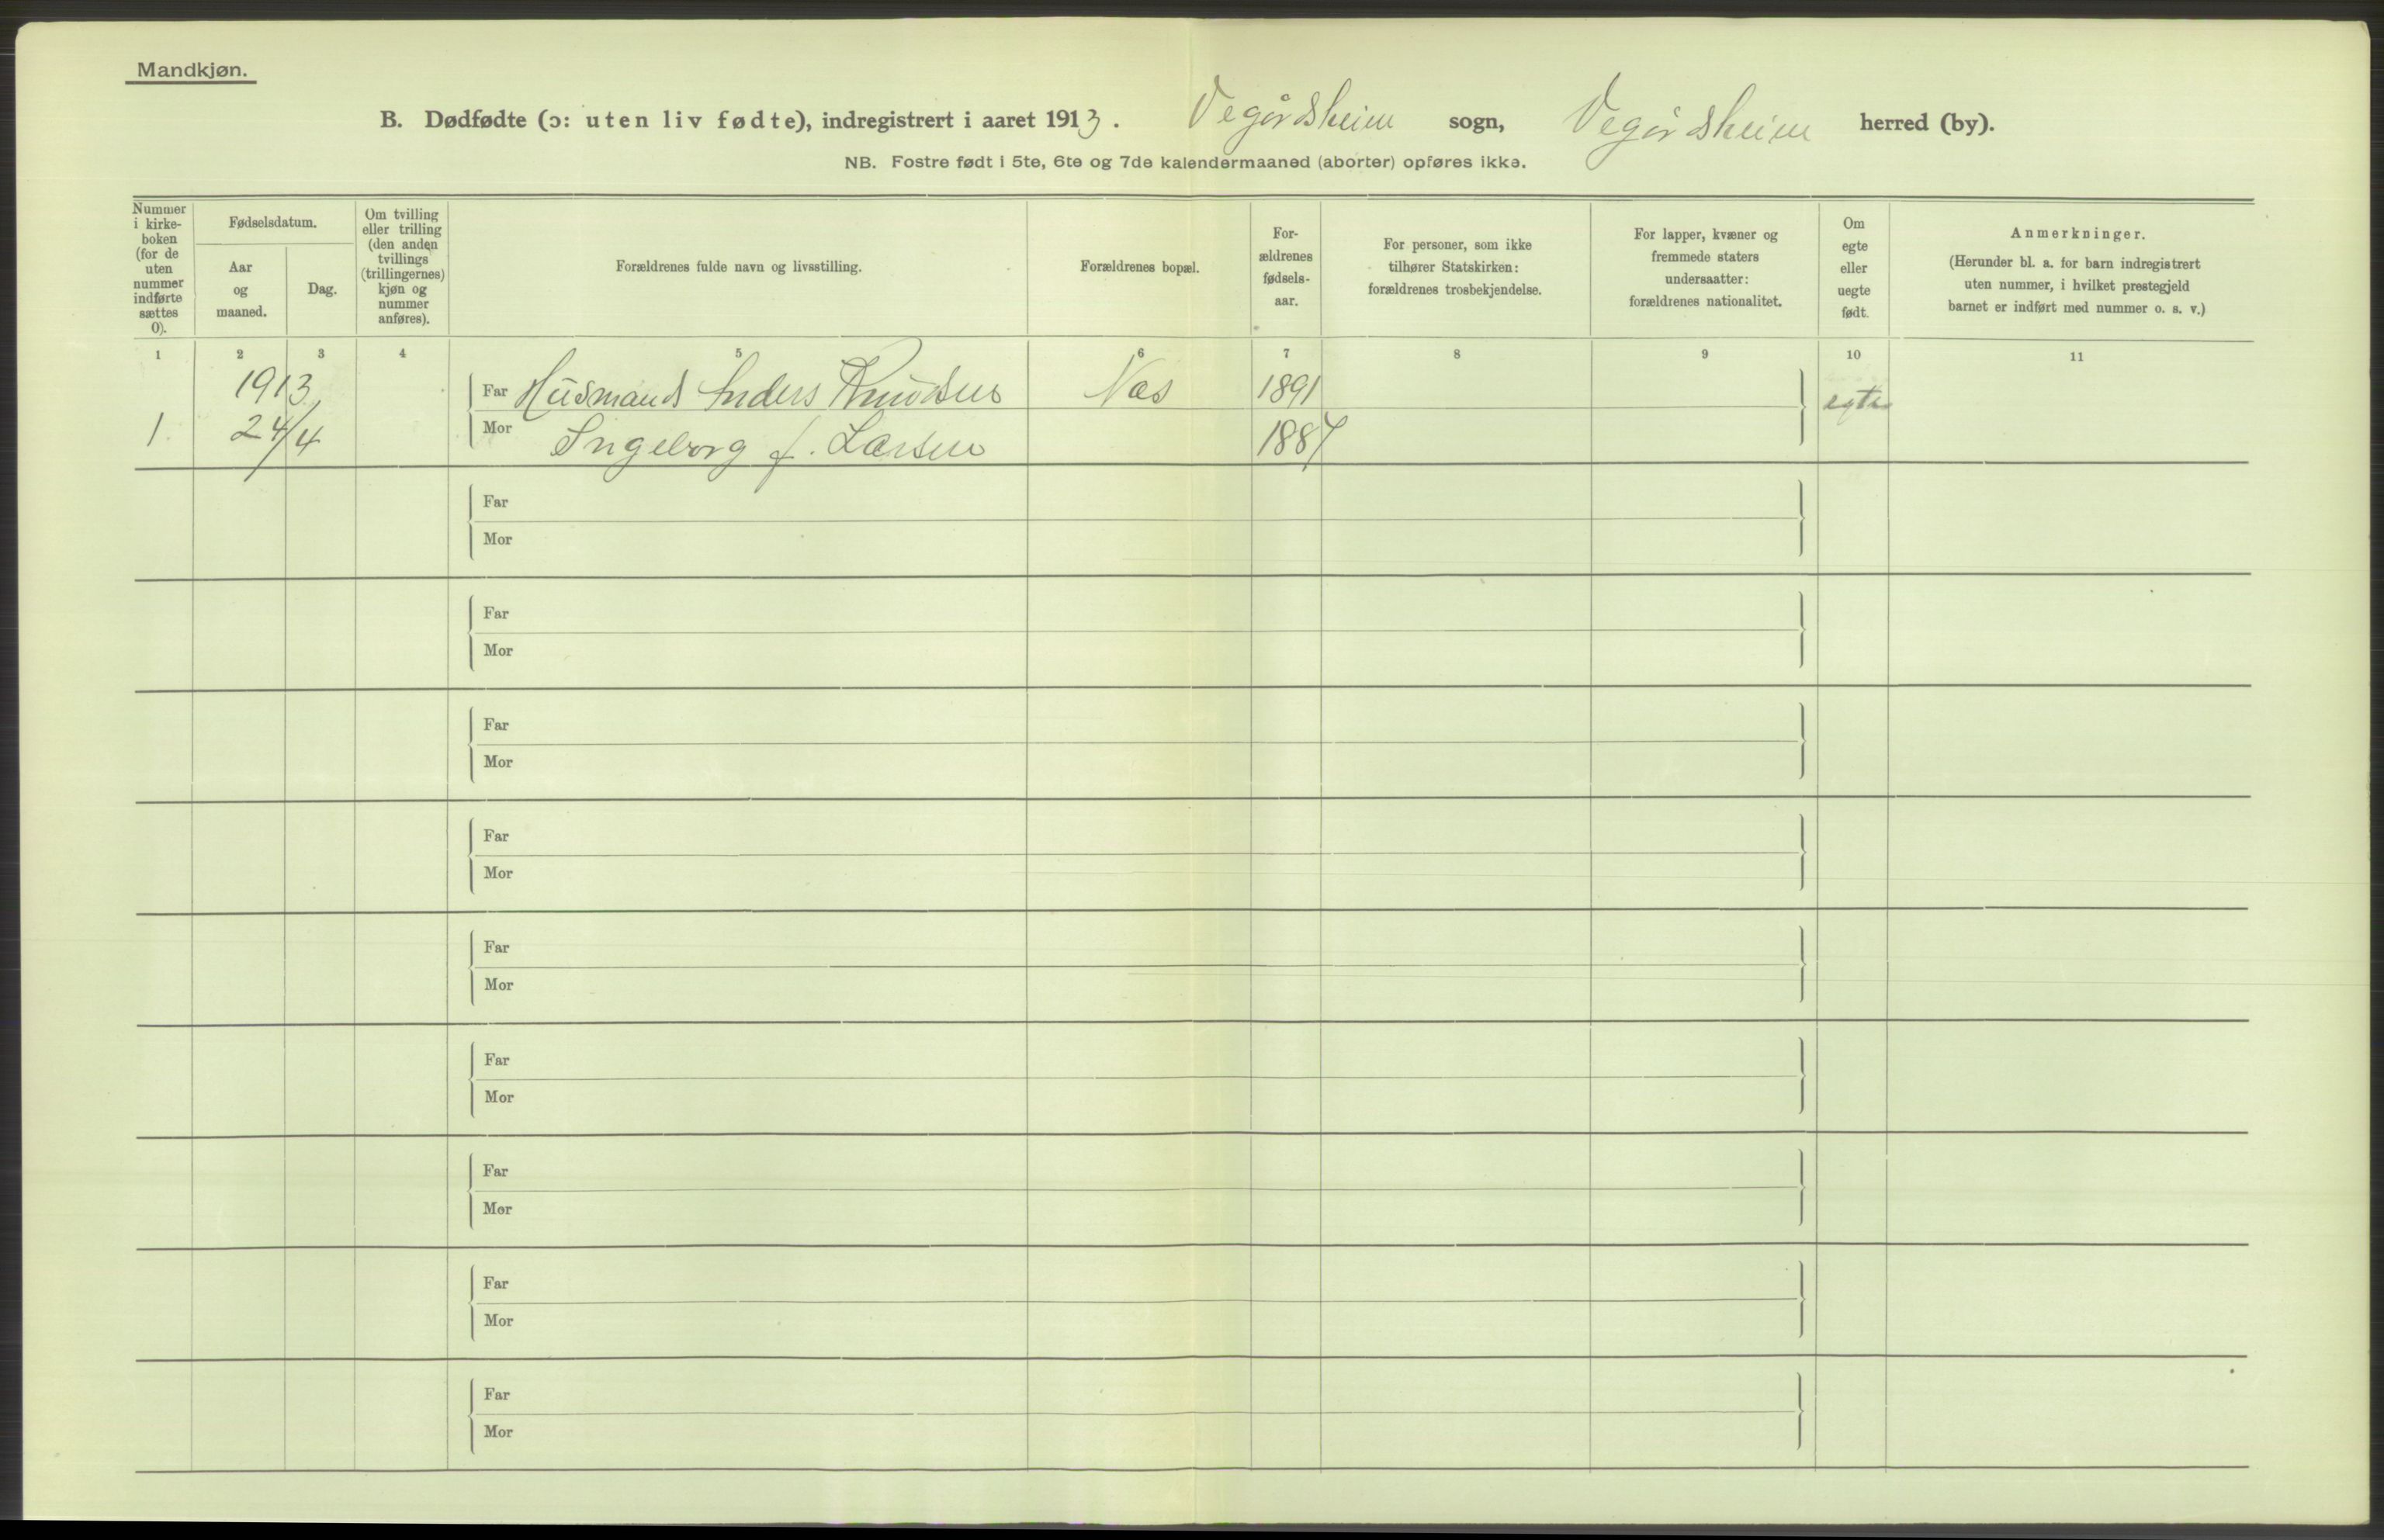 Mandkjøn.
B. Dødfødte (ɔ: uten liv fødte), indregistrert i aaret 1913. Vegårdsheim sogn, Vegårdsheim herred (by).
NB. Fostre født i 5te, 6te og 7de kalendermaaned (aborter) opføres ikke.
Nummer i kirke-boken (for de uten nummer indførte sættes 0).
Fødselsdatum.
Aar og maaned.
Dag.
Om tvilling eller trilling (den anden tvillings (trillingernes) kjøn og nummer anføres).
Forældrenes fulde navn og livsstilling.
Forældrenes bopæl.
For-ældrenes fødsels-aar.
For personer, som ikke tilhører Statskirken: forældrenes trosbekjendelse.
For lapper, kvæner og fremmede staters undersaatter: forældrenes nationalitet.
Om egte eller uegte født.
Anmerkninger.
(Herunder bl. a. for barn indregistrert uten nummer, i hvilket prestegjeld barnet er indført med nummer o. s. v.)
1 2 3 4 5 6 7 8 9 10 11
1913 Far Husmand Anders Knudsen Næs 1891 egte
1 24/4 Mor Ingeborg f. Larsen 1887
Far
Mor
Far
Mor
Far
Mor
Far
Mor
Far
Mor
Far
Mor
Far
Mor
Far
Mor
Far
Mor